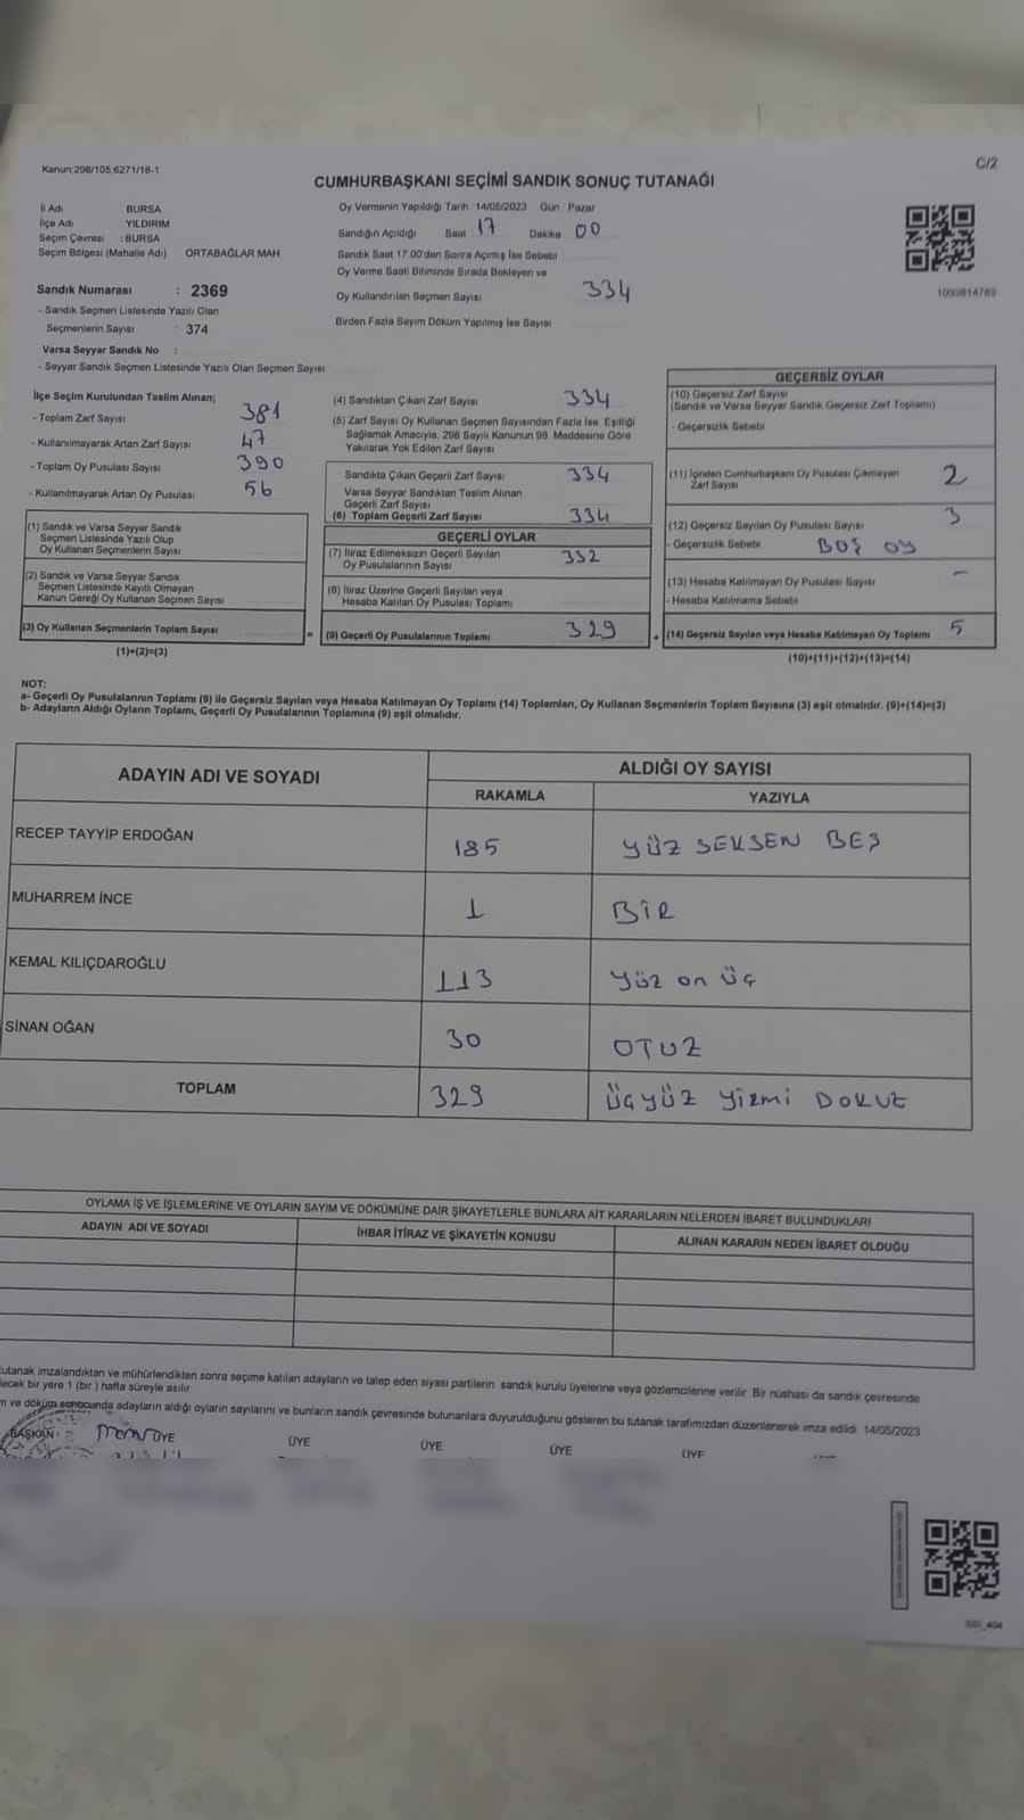 Kanun:298/105.6271/18-1
C/2
CUMHURBAŞKANI SEÇİMİ SANDIK SONUÇ TUTANAĞI
İl Adı BURSA
İlçe Adı YILDIRIM
Seçim Çevresi : BURSA
Seçim Bölgesi (Mahalle Adı) ORTABAĞLAR MAH
Sandık Numarası : 2369
- Sandık Seçmen Listesinde Yazılı Olan
Seçmenlerin Sayısı 374
Varsa Seyyar Sandık No :
- Seyyar Sandık Seçmen Listesinde Yazılı Olan Seçmen Sayısı
Oy Vermenin Yapıldığı Tarih 14/05/2023 Gün Pazar
Sandığın Açıldığı Saat 17 Dakika 00
Sandık Saat 17.00'den Sonra Açılmış İse Sebebi
Oy Verme Saati Bitiminde Sırada Bekleyen ve
Oy Kullandırılan Seçmen Sayısı 334
Birden Fazla Sayım Döküm Yapılmış İse Sayısı
1000814769
İlçe Seçim Kurulundan Teslim Alınan;
- Toplam Zarf Sayısı 381
- Kullanılmayarak Artan Zarf Sayısı 47
- Toplam Oy Pusulası Sayısı 390
- Kullanılmayarak Artan Oy Pusulası 56
(1) Sandık ve Varsa Seyyar Sandık
Seçmen Listesinde Yazılı Olup
Oy Kullanan Seçmenlerin Sayısı
(2) Sandık ve Varsa Seyyar Sandık
Seçmen Listesinde Kayıtlı Olmayan
Kanun Gereği Oy Kullanan Seçmen Sayısı
(3) Oy Kullanan Seçmenlerin Toplam Sayısı
(1)+(2)=(3)
(4) Sandıktan Çıkan Zarf Sayısı 334
(5) Zarf Sayısı Oy Kullanan Seçmen Sayısından Fazla İse, Eşitliği
Sağlamak Amacıyla, 298 Sayılı Kanunun 98. Maddesine Göre
Yakılarak Yok Edilen Zarf Sayısı
Sandıkta Çıkan Geçerli Zarf Sayısı 334
Varsa Seyyar Sandıktan Teslim Alınan
Geçerli Zarf Sayısı
(6) Toplam Geçerli Zarf Sayısı 334
GEÇERLİ OYLAR
(7) İtiraz Edilmeksizin Geçerli Sayılan 332
Oy Pusulalarının Sayısı
(8) İtiraz Üzerine Geçerli Sayılan veya
Hesaba Katılan Oy Pusulası Toplamı
= (9) Geçerli Oy Pusulalarının Toplamı 329
GEÇERSİZ OYLAR
(10) Geçersiz Zarf Sayısı
(Sandık ve Varsa Seyyar Sandık Geçersiz Zarf Toplamı)
- Geçersizlik Sebebi
(11) İçinden Cumhurbaşkanı Oy Pusulası Çıkmayan
Zarf Sayısı 2
(12) Geçersiz Sayılan Oy Pusulası Sayısı 3
- Geçersizlik Sebebi BOŞ OY
(13) Hesaba Katılmayan Oy Pusulası Sayısı -
- Hesaba Katılmama Sebebi
+ (14) Geçersiz Sayılan veya Hesaba Katılmayan Oy Toplamı 5
(10)+(11)+(12)+(13)=(14)
NOT:
a- Geçerli Oy Pusulalarının Toplamı (9) ile Geçersiz Sayılan veya Hesaba Katılmayan Oy Toplamı (14) Toplamları, Oy Kullanan Seçmenlerin Toplam Sayısına (3) eşit olmalıdır. (9)+(14)=(3)
b- Adayların Aldığı Oyların Toplamı, Geçerli Oy Pusulalarının Toplamına (9) eşit olmalıdır.
ADAYIN ADI VE SOYADI
ALDIĞI OY SAYISI
RAKAMLA YAZIYLA
RECEP TAYYİP ERDOĞAN 185 YÜZ SEKSEN BEŞ
MUHARREM İNCE 1 BİR
KEMAL KILIÇDAROĞLU 113 Yüz on üç
SİNAN OĞAN 30 OTUZ
TOPLAM 329 ÜÇYÜZ YİRMİ DOKUZ
OYLAMA İŞ VE İŞLEMLERİNE VE OYLARIN SAYIM VE DÖKÜMÜNE DAİR ŞİKAYETLERLE BUNLARA AİT KARARLARIN NELERDEN İBARET BULUNDUKLARI
ADAYIN ADI VE SOYADI İHBAR İTİRAZ VE ŞİKAYETİN KONUSU ALINAN KARARIN NEDEN İBARET OLDUĞU
utanak imzalandıktan ve mühürlendikten sonra seçime katılan adayların ve talep eden siyasi partilerin sandık kurulu üyelerine veya gözlemcilerine verilir. Bir nüshası da sandık çevresinde
lecek bir yere 1 (bir) hafta süreyle asılır
m ve döküm sonucunda adayların aldığı oyların sayılarını ve bunların sandık çevresinde bulunanlara duyurulduğunu gösteren bu tutanak tarafımızdan düzenlenerek imza edildi. 14/05/2023
BAŞKAN ÜYE ÜYE ÜYE ÜYE ÜYE